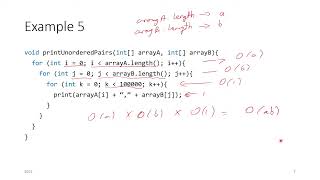 Example 5
arrayA length → a
arrayB length → b
void printUnorderedPairs(int[] arrayA, int[] arrayB){
for (int i = 0; i < arrayA.length(); i++){ → O(a)
for (int j = 0; j < arrayB.length(); j++){ → O(b)
for (int k = 0; k < 100000; k++){ → O(1)
print(arrayA[i] + "," + arrayB[j]); ← 1
}
}
}
}
O(a) × O(b) × O(1) = O(ab)